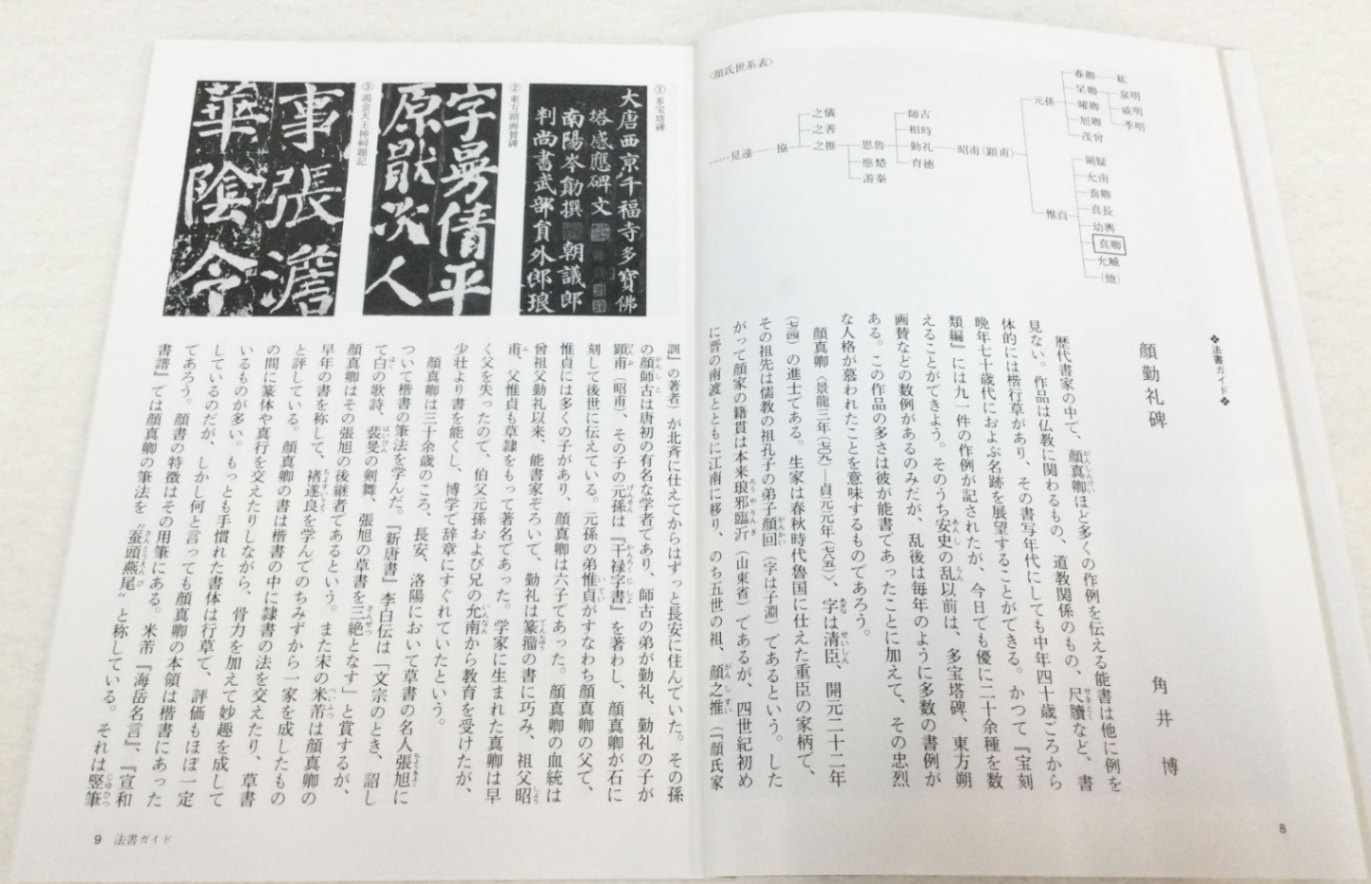 ❖法書ガイド❖
顔勤礼碑
角井 博
歴代書家の中で、顔真卿ほど多くの作例を伝える能書は他に例を
見ない。作品は仏教に関わるもの、道教関係のもの、尺牘など、書
体的には楷行草があり、その書写年代にしても中年四十歳ころから
晩年七十歳代におよぶ名跡を展望することができる。かつて『宝刻
類編』には九一件の作例が記されたが、今日でも優に二十余種を数
えることができよう。そのうち安史の乱以前は、多宝塔碑、東方朔
画賛などの数例があるのみだが、乱後は毎年のように多数の書例が
ある。この作品の多さは彼が能書であったことに加えて、その忠烈
な人格が慕われたことを意味するものであろう。
顔真卿〈景龍三年(七〇九)―貞元元年(七八五)〉、字は清臣、開元二十二年
(七三四)の進士である。生家は春秋時代魯国に仕えた重臣の家柄で、
その祖先は儒教の祖孔子の弟子顔回(字は子淵)であるという。した
がって顔家の籍貫は本来琅邪臨沂(山東省)であるが、四世紀初め
に晋の南渡とともに江南に移り、のち五世の祖、顔之推(『顔氏家
〈顔氏世系表〉
……見遠
協
之儀
之善
之推
思魯
愍楚
游秦
師古
相時
勤礼
育徳
昭甫(顕甫)
元孫
惟貞
春卿
杲卿
曜卿
旭卿
茂曾
泉明
威明
季明
闕疑
允南
喬卿
真長
幼輿
真卿
允臧
(他)
8
①多宝塔碑
大唐西京千福寺多寶佛
塔感應碑文
南陽岑勛撰 朝議郎
判尚書武部員外郎琅
②東方朔画賛碑
字曼倩平
原猒次人
③謁金天王神祠題記
事張澹
華陰令
訓』の著者)が北斉に仕えてからはずっと長安に住んでいた。その孫
の顔師古は唐初の有名な学者であり、師古の弟が勤礼、勤礼の子が
顕甫(昭甫)、その子の元孫は『干禄字書』を著わし、顔真卿が石に
刻して後世に伝えている。元孫の弟惟貞がすなわち顔真卿の父で、
惟貞には多くの子があり、顔真卿は六子であった。顔真卿の血統は
曾祖父勤礼以来、能書家ぞろいで、勤礼は篆籀の書に巧み、祖父昭
甫、父惟貞も草隷をもって著名であった。学家に生まれた真卿は早
く父を失ったので、伯父元孫および兄の允南から教育を受けたが、
少壮より書を能くし、博学で辞章にすぐれていたという。
顔真卿は三十余歳のころ、長安、洛陽において草書の名人張旭に
ついて楷書の筆法を学んだ。『新唐書』李白伝は「文宗のとき、詔し
て白の歌詩、裴旻の剣舞、張旭の草書を三絶となす」と賞するが、
顔真卿はその張旭の後継者であるという。また宋の米芾は顔真卿の
早年の書を称して、褚遂良を学んでのちみずから一家を成したもの
と評している。顔真卿の書は楷書の中に隷書の法を交えたり、草書
の間に篆体や真行を交えたりしながら、骨力を加えて妙趣を成して
いるものが多い。もっとも手慣れた書体は行草で、評価もほぼ一定
しているのだが、しかし何と言っても顔真卿の本領は楷書にあった
であろう。顔書の特徴はその用筆にある。米芾『海岳名言』、『宣和
書譜』では顔真卿の筆法を〝蚕頭燕尾〟と称している。それは竪筆
9 法書ガイド